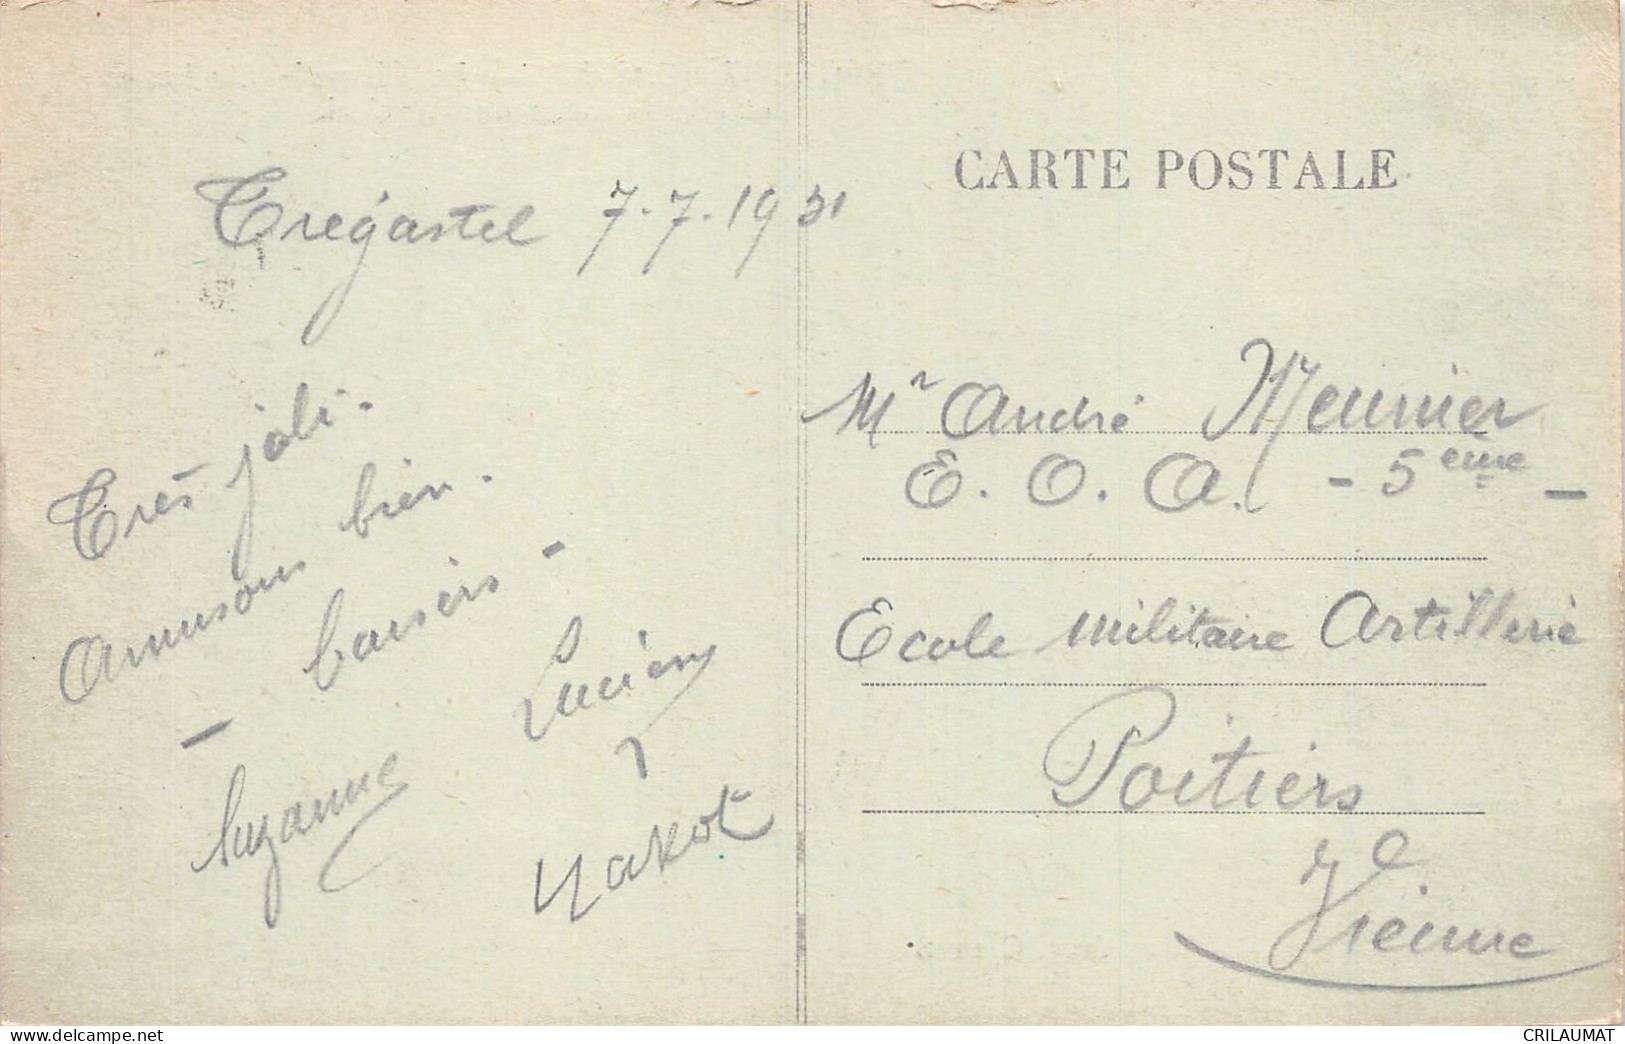 CARTE POSTALE
Tregastel 7.7.1931
Très joli.
Amusons bien.
- baisers -
Suzanne
Lucien
Mr André Meunier
E. O. A. - 5ème -
Ecole Militaire Artillerie
Poitiers
Vienne
www.delcampe.net
CRILAUMAT